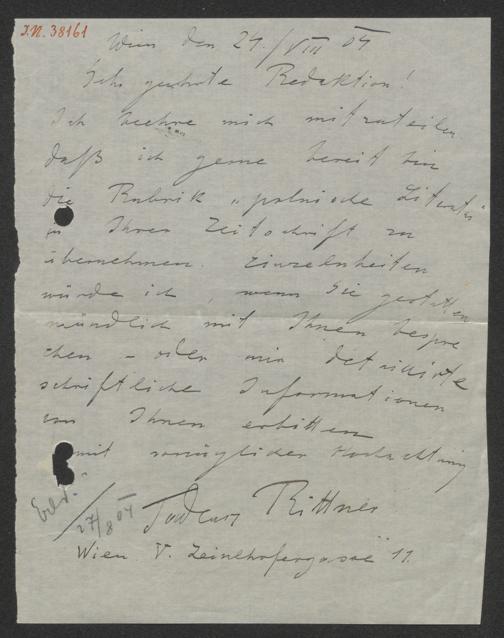 I.N. 38161
Wien den 24./VIII 04
Sehr geehrte Redaktion!
Ich beehre mich mitzuteilen
daß ich gerne bereit bin
die Rubrik „polnische Literatur"
in Ihrer Zeitschrift zu
übernehmen. Einzelnheiten
würde ich, wenn Sie gestatten
mündlich mit Ihnen bespre
chen – oder mir detaillirte
schriftliche Informationen
von Ihnen erbitten
mit vorzüglicher Hochachtung
Tadeusz Rittner
Erl.
27/8 04
Wien V. Zeinlhofergasse 11.